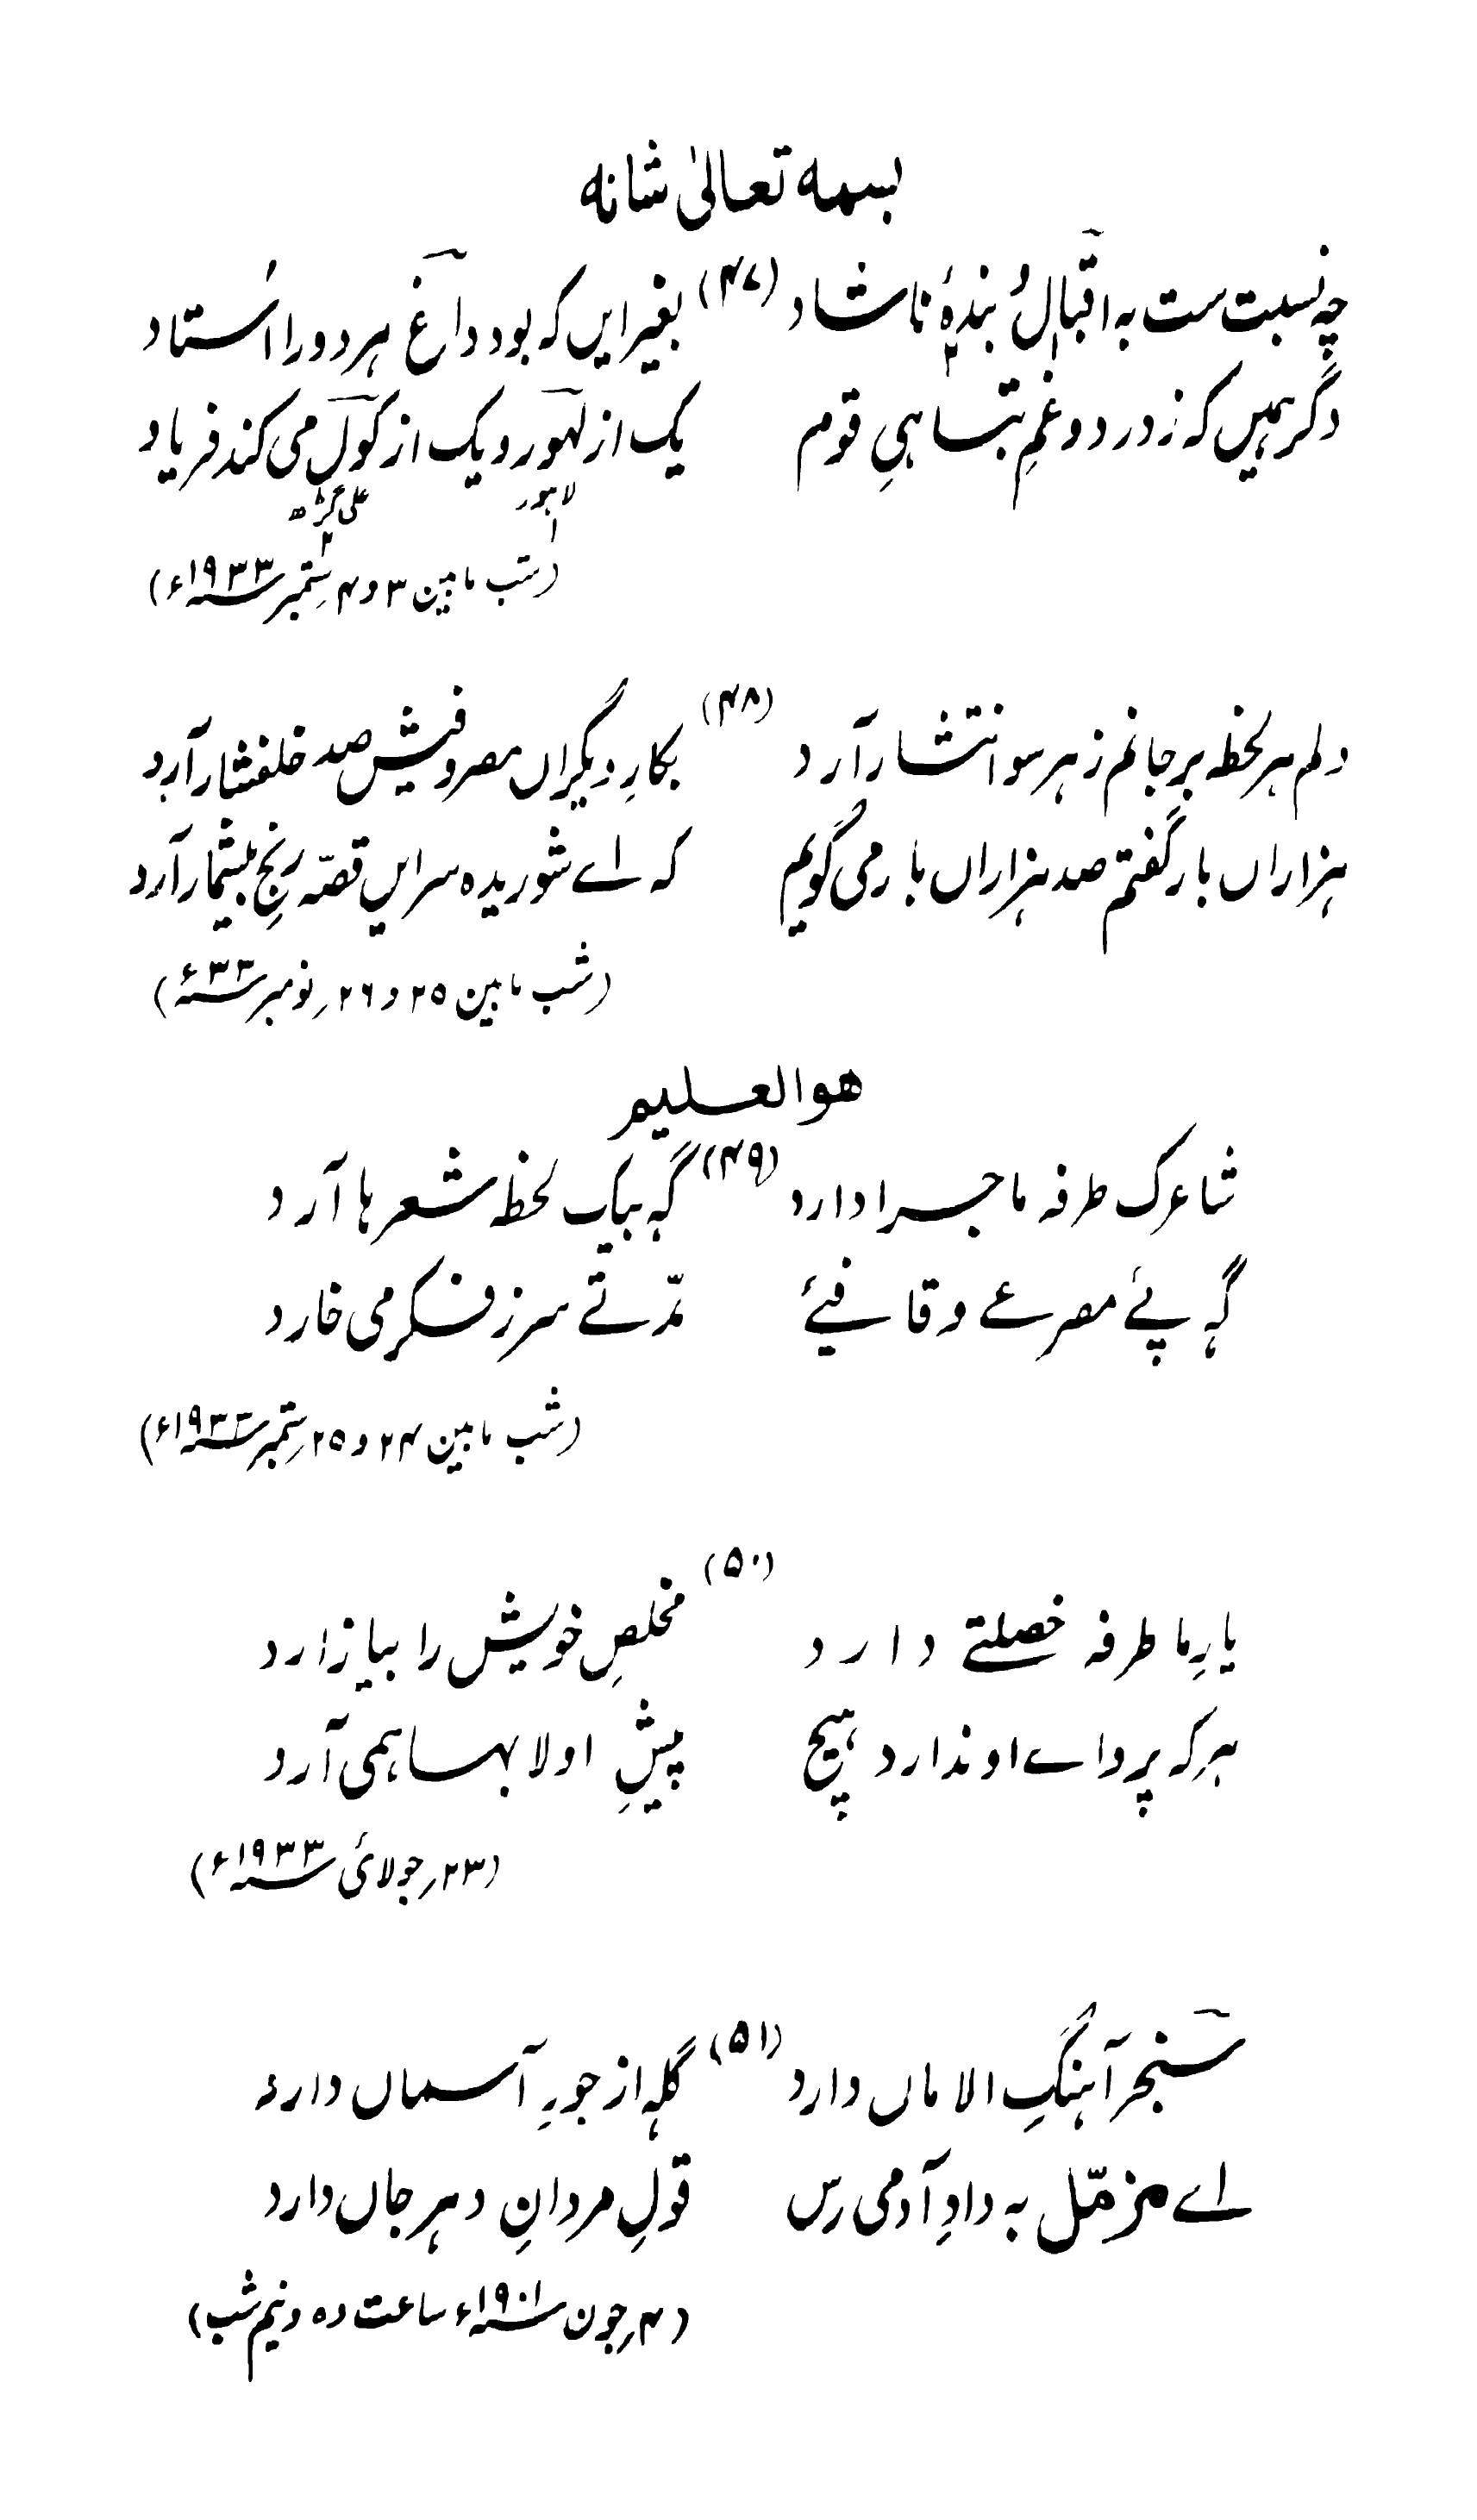 بسمہ تعالیٰ شانہ
چہ نسبت ست بہ اقبال بندۂ ناشاد (۴۷) بغیر ایں کہ بود داغ ہر دو را اُستاد
دگر ہمیں کہ ز درد و غمِ تباہیِ قوم یک از لہور و یک از کول می کند فریاد
لاہور علی گڑھ
(شب مابین ۳ و ۴ ستمبر ۱۹۳۳ء)
دلم ہر لحظہ بر جانم ز ہر سو انتشار آرد (۴۸) بکارِ دیگراں مصروفیش صد خلفشار آرد
ہزاراں بار گفتم صد ہزاراں بار می گویم کہ اے شوریدہ سر ایں قصہ رنجِ بیشمار آرد
(شب مابین ۲۵ و ۲۶ نومبر ۳۳ء)
ھوالعلیم
شاعرک طرفہ ماجرا دارد (۴۹) گہ بیک لحظہ شعرہا آرد
گہ پئے مصرعے و قافیئے مدّتے سر ز فکر می خارد
(شب مابین ۲۴ و ۲۵ ستمبر ۱۹۳۳ء)
(۵۰)
یارِ ما طرفہ خصلتے دارد مخلصِ خویش را بیازارد
ہر کہ پرواے او ندارد ہیچ پیشِ او لابہا ہمی آرد
(۲۳ جولائی ۱۹۳۳ء)
سنجر آہنگِ الاماں دارد (۵۱) گلہ از جورِ آسماں دارد
اے مزمّل بہ دادِ آدمی رس قولِ مرداں دہرِ جاں دارد
(۴ جون ۱۹۰۱ء ساعت دہ و نیم شب)